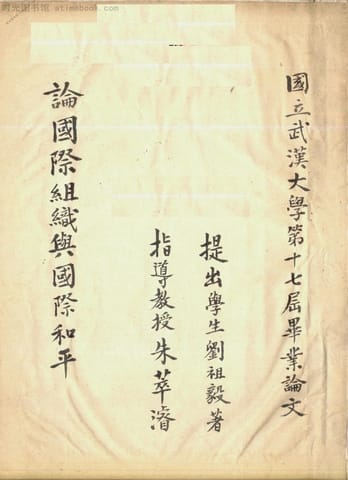 时光图书馆 atimebook.com
國立武漢大學第十七屆畢業論文
提出學生劉祖毅著
指導教授朱萃濬
論國際組織與國際和平